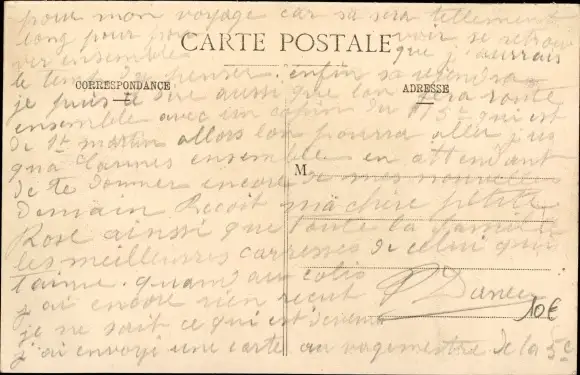 pour mon voyage car sa sera tellement
long pour pouvoir se retrouver ensemble
CARTE POSTALE
que j'aurais
le temp de penser. enfin sa viendra
CORRESPONDANCE
ADRESSE
je puis te dire aussi que lon fera route
ensemble avec un copin du 5e qui est
de St martin allors lon pourra aller jus
qu'a Cannes ensemble. en attendant
M
de te donner encore de mes nouvelles
Demain Recoit ma chère petite
Rose ainsi que toute la famille
les meilleures carresses de celui qui
t'aime. quand aux colis
j'ai encore rien recut
10€
je ne sait ce qui est devenu
j'ai envoyi une carte au vagmestre de la 5e